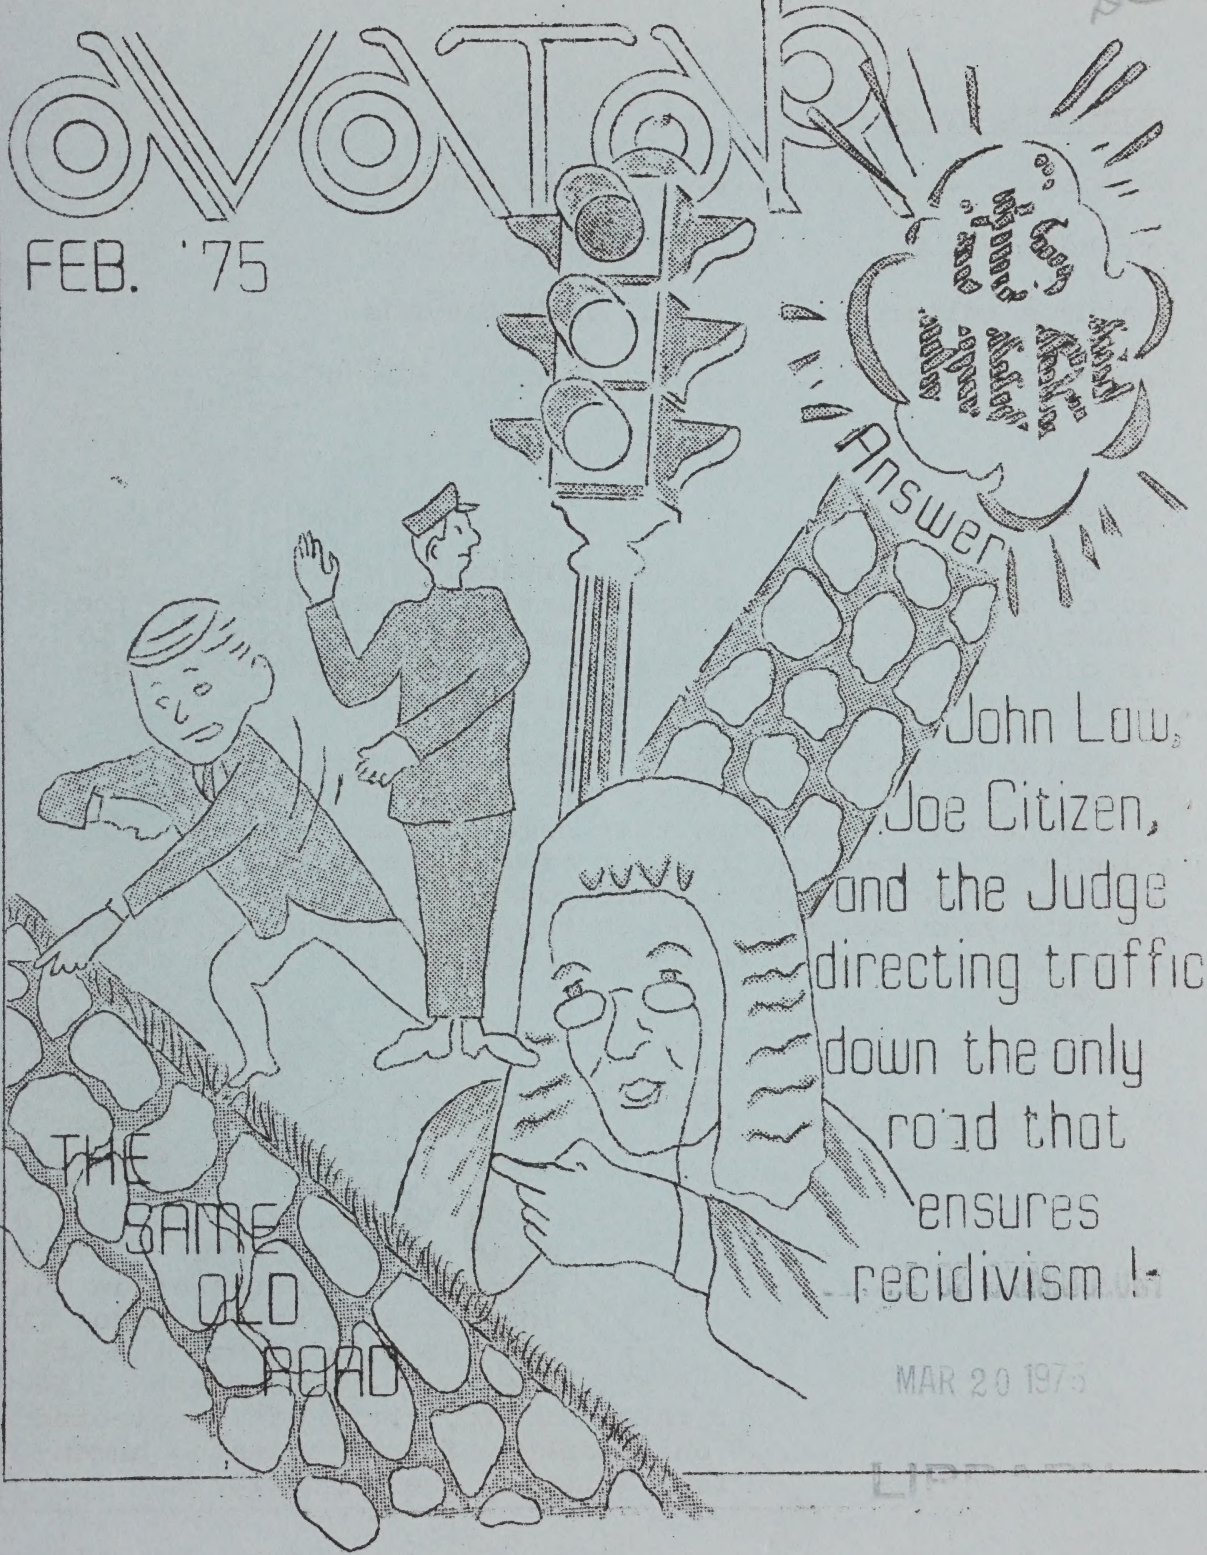 AVATAR
FEB. '75
its
HERE
Answer
John Law,
Joe Citizen,
and the Judge
directing traffic
down the only
road that
ensures
recidivism !
THE
SAME
OLD
ROAD
MAR 20 1975
LIBRARY